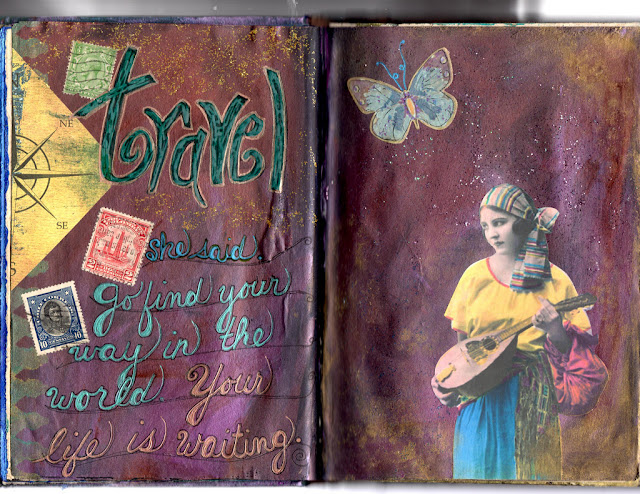 travel
NE
she said.
SE
2 2
go find your
10 10
way in the
world. Your
life is waiting.